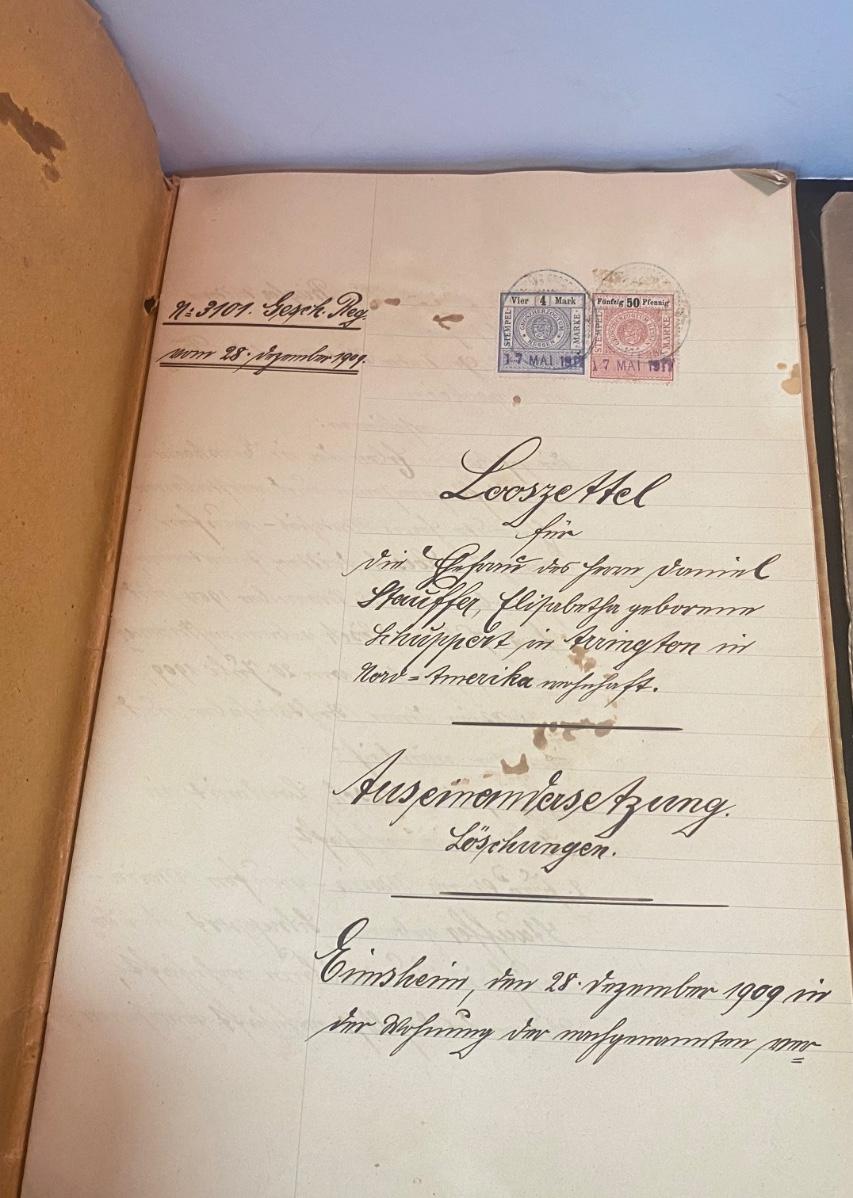 No 3101. Gesch. Reg.
vom 28. Dezember 1909.
Vier 4 Mark
STEMPEL-
MARKE
GROSHERZOGTUM
HESSEN
17 MAI
Fünfzig 50 Pfennig
STEMPEL-
MARKE
GROSHERZOGTUM
HESSEN
17 MAI
Looszettel
für
die Ehefrau des Herrn Daniel
Stauffer, Elisabetha geborene
Schuppert, in Arrington in
Nord=Amerika wohnhaft.
Auseinandersetzung.
Löschungen.
Eimsheim, den 28. Dezember 1909 in
der Wohnung der nachgenannten ver=